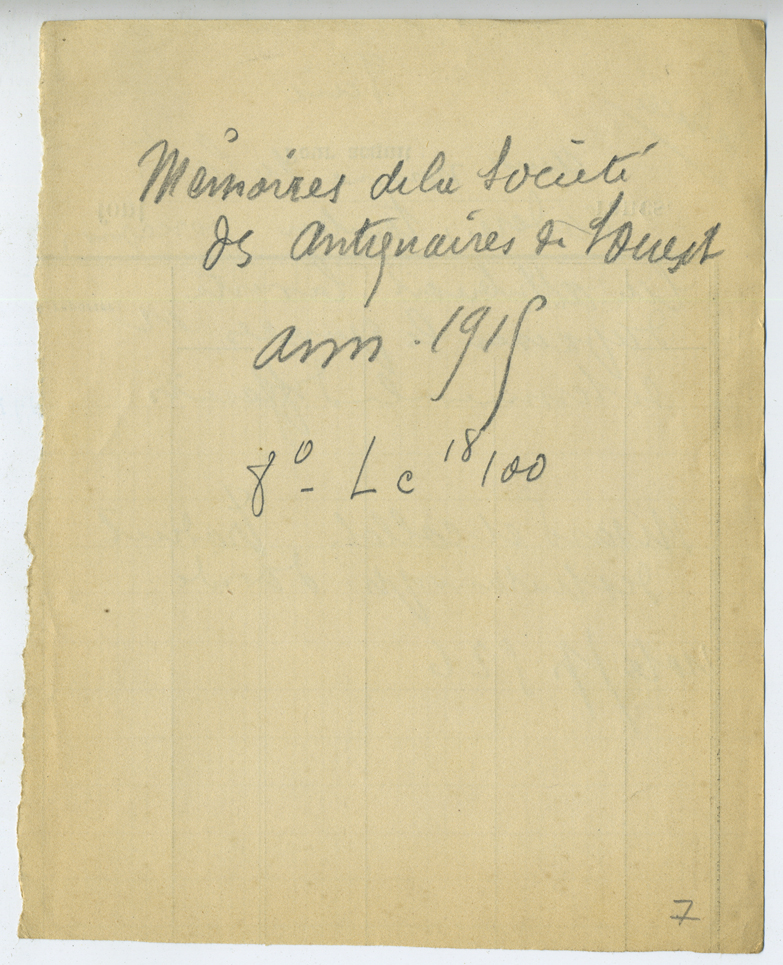 Mémoires de la Société
des Antiquaires de l'Ouest
ann. 1915
8° - Lc 18/100
7